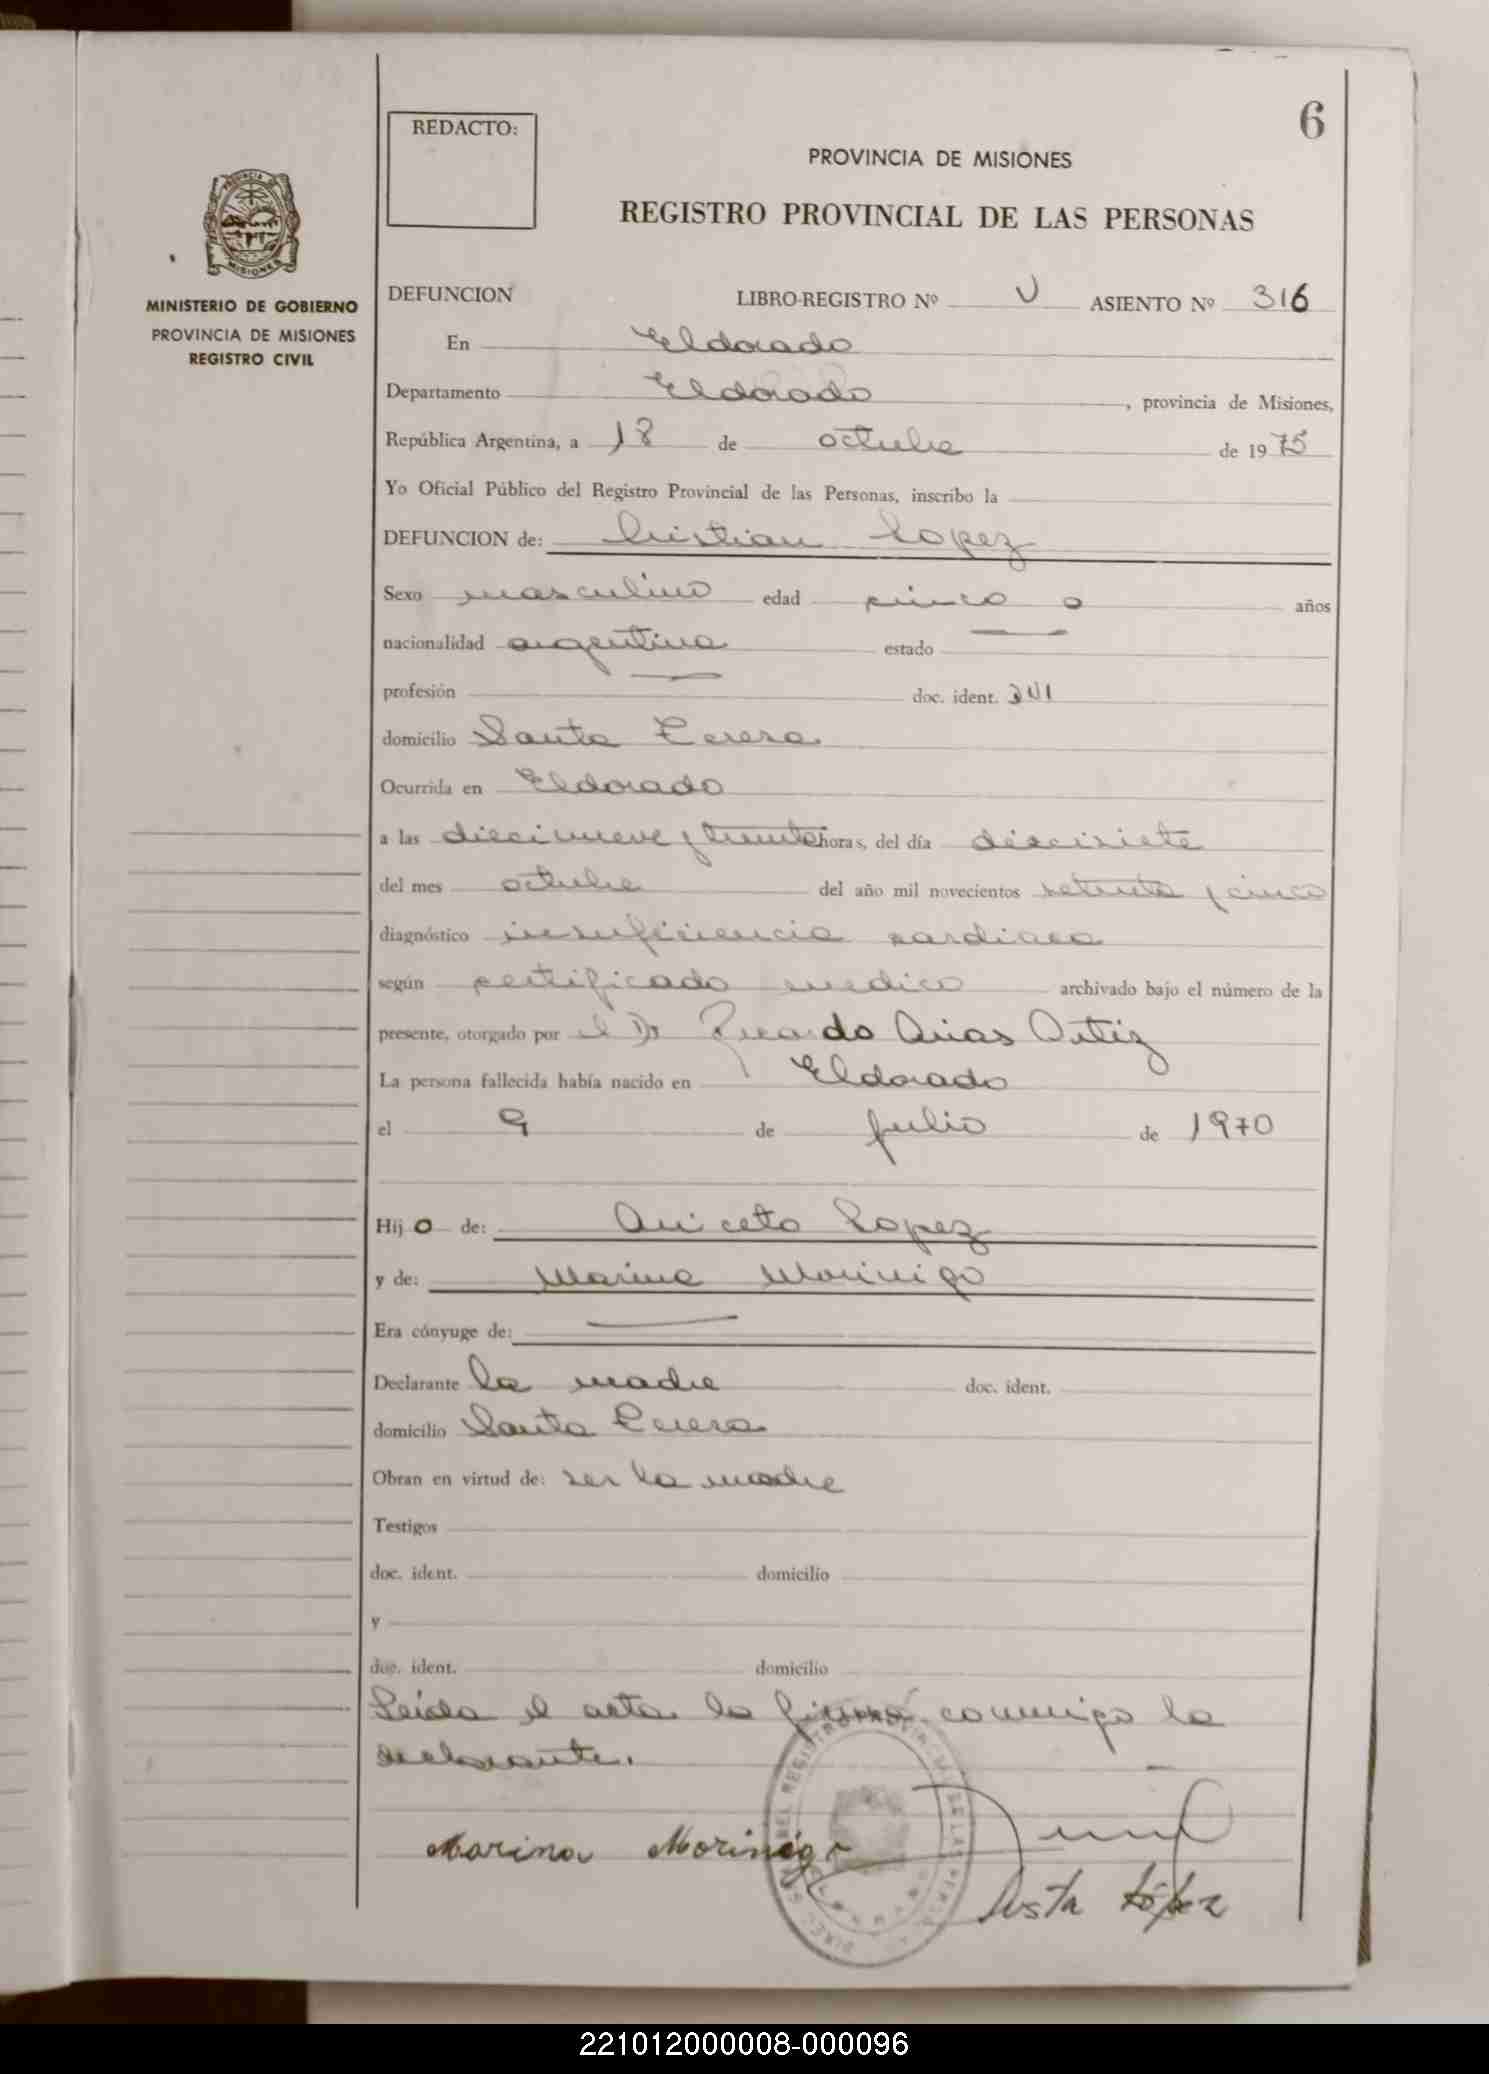 6
REDACTO:
PROVINCIA DE MISIONES
REGISTRO PROVINCIAL DE LAS PERSONAS
MINISTERIO DE GOBIERNO
PROVINCIA DE MISIONES
REGISTRO CIVIL
DEFUNCION LIBRO-REGISTRO Nº V ASIENTO Nº 316
En Eldorado
Departamento Eldorado, provincia de Misiones,
República Argentina, a 18 de octubre de 1975
Yo Oficial Público del Registro Provincial de las Personas, inscribo la
DEFUNCION de: Cristian Lopez
Sexo masculino edad cinco años
nacionalidad argentina estado
profesión doc. ident.
domicilio Santa Teresa
Ocurrida en Eldorado
a las diecinueve y treinta horas, del día diecisiete
del mes octubre del año mil novecientos setenta y cinco
diagnóstico insuficiencia cardiaca
según certificado medico archivado bajo el número de la
presente, otorgado por el Dr Ricardo Arias Ortiz
La persona fallecida había nacido en Eldorado
el 9 de julio de 1970
Hijo de: Aniceto Lopez
y de: Marina Morinigo
Era cónyuge de:
Declarante la madre doc. ident.
domicilio Santa Teresa
Obran en virtud de: ser la madre
Testigos
doc. ident. domicilio
y
doc. ident. domicilio
Leida el acta la firma conmigo la
declarante.
Marina Morinigo
López
221012000008-000096